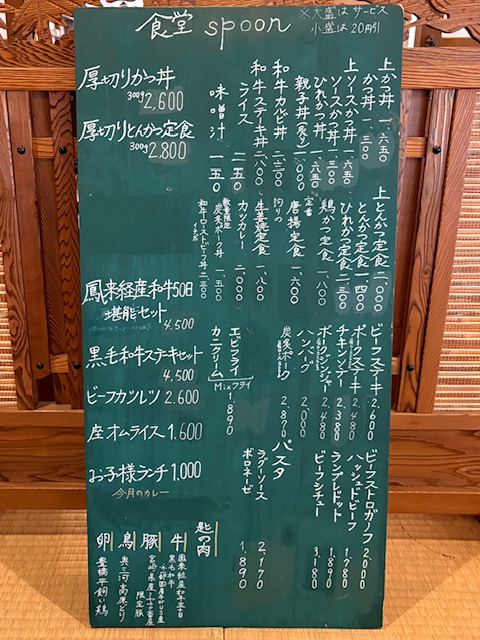 食堂 spoon
※大盛は サービス
小盛は 20円引
上かつ丼 一、六五〇
かつ丼 一、三〇〇
上ソースかつ丼 一、六五〇
ソースかつ丼 一、三〇〇
ひれかつ丼 一、六五〇
親子丼(炙り) 一、〇〇〇
和牛カルビ丼 二、六〇〇
和牛ステーキ丼 二、八〇〇
ライス 二五〇
味噌汁 一五〇
厚切りかつ丼
300g 2.600
厚切りとんかつ定食
300g 2.800
上とんかつ定食 二、〇〇〇
とんかつ定食 一、四〇〇
ひれかつ定食 二、〇〇〇
鶏かつ定食 一、八〇〇
定番
唐揚定食 一、六〇〇
拘りの
生姜焼定食 一、八〇〇
カツカレー 二、〇〇〇
数量限定
炭炙ポーク丼 一、五〇〇
和牛ローストビーフ丼 二、三〇〇
鳳来経産和牛50日
堪能セット
4.500
黒毛和牛ステーキセット
4.500
ビーフカツレツ 2.600
座オムライス 1.600
お子様ランチ 1.000
今月のカレー
ビーフステーキ 2,600
ポークステーキ 2,480
チキンソテー 2,380
ポークジンジャー 2,480
ハンバーグ 2,000
炭炙ポーク 2,870
エビフライ
カニクリーム
Mixフライ
1,890
ビーフストロガーフ 2,000
ハッシュドビーフ 1,780
ランプレドット 1,890
ビーフシチュー 3,180
パスタ
ラグーソース 2,170
ボロネーゼ 1,890
匙の肉
牛
鳳来経産和牛五十日
黒毛和牛
豚
限定豚
鳥
奥三河高原どり
卵
豊橋平飼い鶏